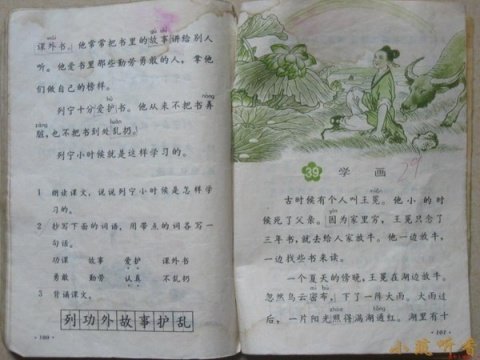 课外书。他常常把书里的故事讲给别人
听。他爱书里那些勤劳勇敢的人，拿他
们做自己的榜样。
列宁十分爱护书。他从来不把书弄
脏，也不把书到处乱扔。
列宁小时候就是这样学习的。
1 朗读课文，说说列宁小时候是怎样学
习的。
2 抄写下面的词语，用带点的词各写一
句话。
功课 故事 爱护 课外书
勇敢 勤劳 认真 不乱扔
3 背诵课文。
列功外故事护乱
·160·
39 学画
29
古时候有个人叫王冕。他小的时
候死了父亲。因为家里穷，王冕只念了
三年书，就去给人家放牛。他一边放牛，
一边找些书来读。
一个夏天的傍晚，王冕在湖边放牛。
忽然乌云密布，下了一阵大雨。大雨过
后，一片阳光照得满湖通红。湖里有十
·161·